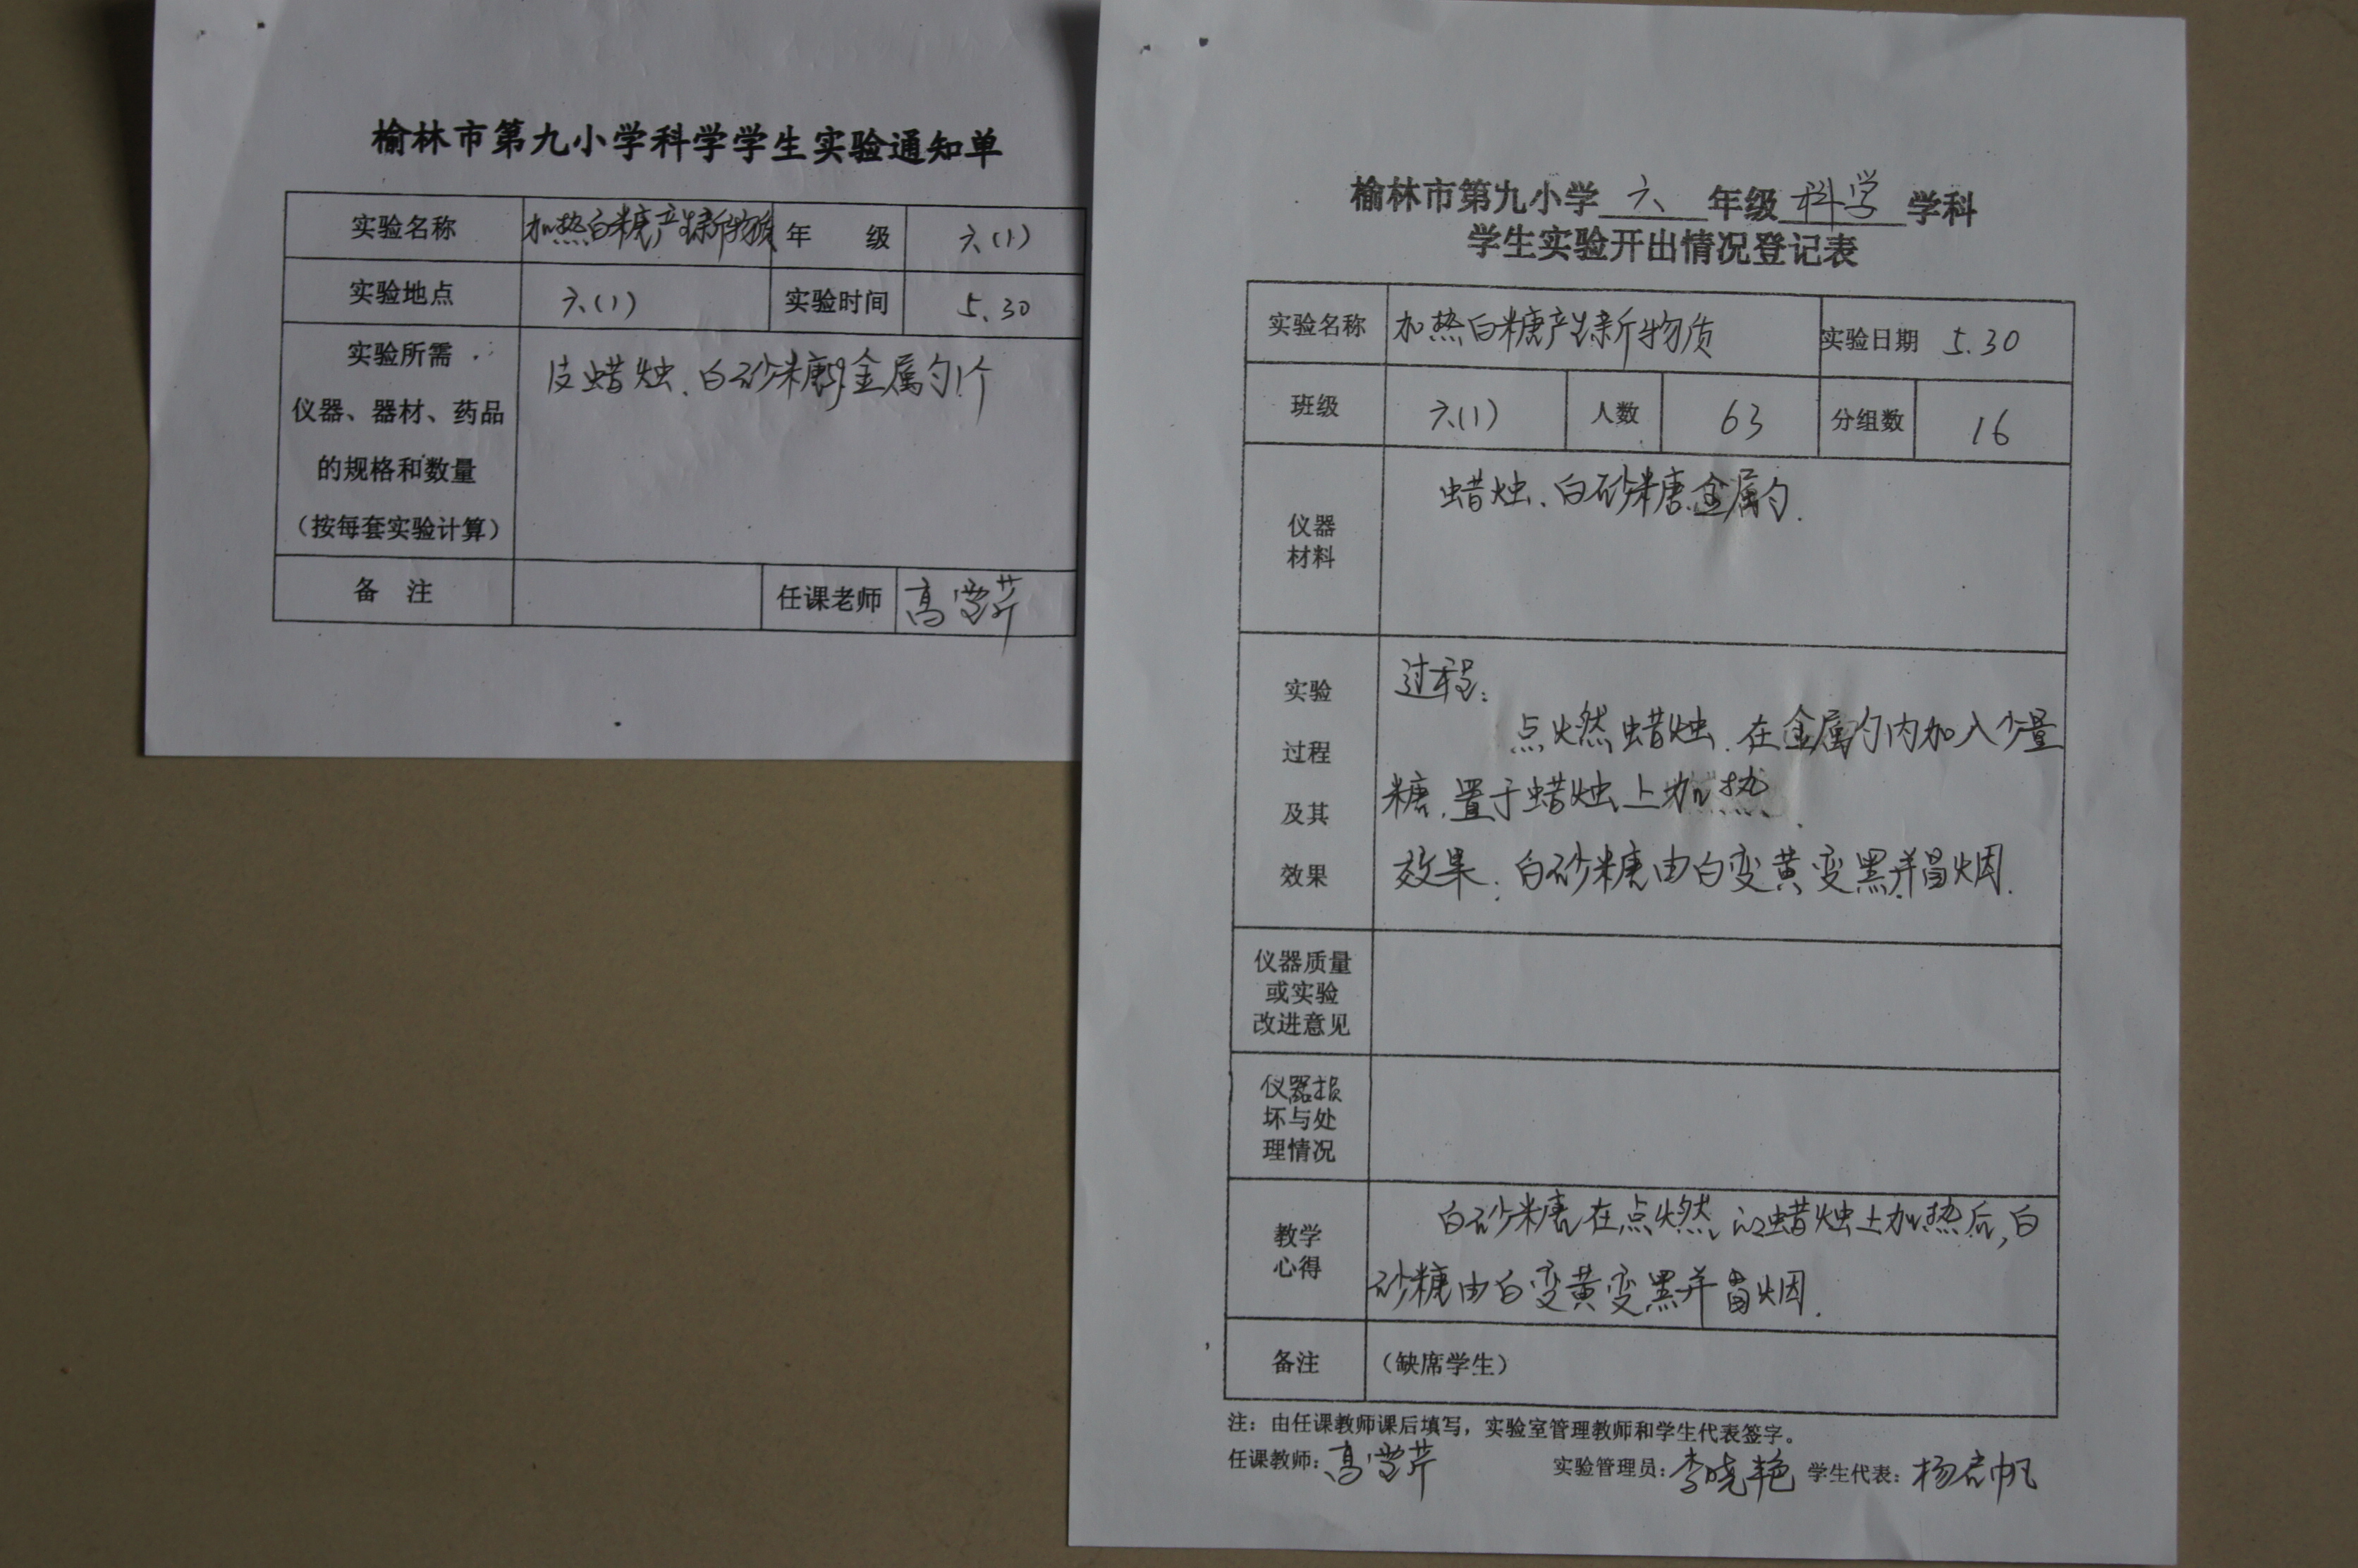 榆林市第九小学科学学生实验通知单
实验名称 加热白糖产生新物质 年 级 六(1)
实验地点 六(1) 实验时间 5.30
实验所需
仪器、器材、药品
的规格和数量
(按每套实验计算)
蜡烛、白砂糖 金属勺1个
备 注 任课老师 高学芹
榆林市第九小学 六 年级 科学 学科
学生实验开出情况登记表
实验名称 加热白糖产生新物质 实验日期 5.30
班级 六(1) 人数 63 分组数 16
仪器
材料
蜡烛、白砂糖、金属勺.
实验
过程
及其
效果
过程:
点燃蜡烛.在金属勺内加入少量
糖.置于蜡烛上加热.
效果:白砂糖由白变黄变黑并冒烟.
仪器质量
或实验
改进意见
仪器损
坏与处
理情况
教学
心得
白砂糖在点燃的蜡烛上加热后,白
砂糖由白变黄变黑并冒烟.
备注 (缺席学生)
注:由任课教师课后填写,实验室管理教师和学生代表签字。
任课教师:高学芹 实验管理员:李晓艳 学生代表:杨启帆